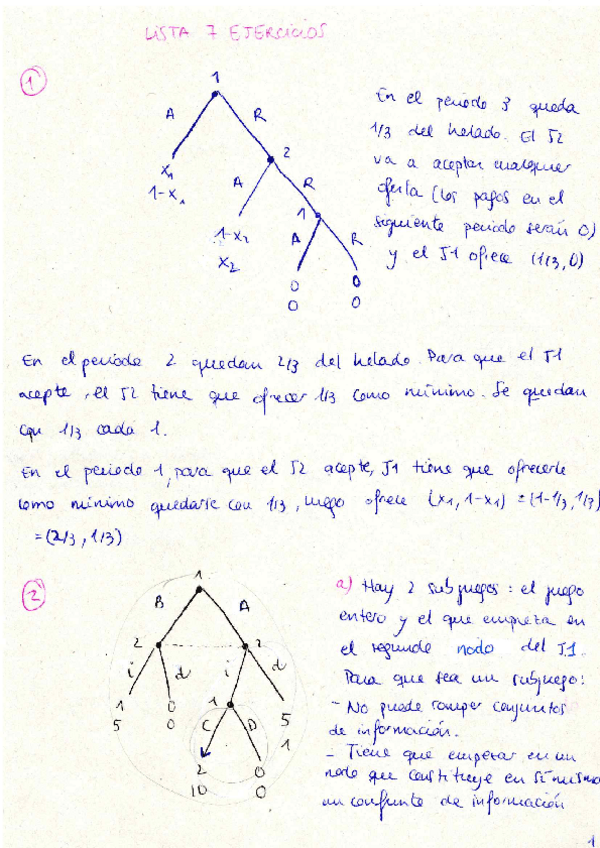 LISTA 7 EJERCICIOS
1
1
A
R
x1
1-x1
2
A
R
1-x2
x2
1
A
R
0
0
0
0
En el periodo 3 queda
1/3 del helado. El J2
va a aceptar cualquier
oferta (los pagos en el
siguiente periodo serán 0)
y el J1 ofrece (1/3, 0)
En el periodo 2 quedan 2/3 del helado. Para que el J1
acepte, el J2 tiene que ofrecer 1/3 como mínimo. Se quedan
con 1/3 cada 1.
En el periodo 1, para que el J2 acepte, J1 tiene que ofrecerle
como mínimo quedarse con 1/3, luego ofrece (x1, 1-x1) = (1-1/3, 1/3)
= (2/3, 1/3)
2
1
B
A
2
2
i
d
i
d
1
5
0
0
1
5
1
C
D
2
10
0
0
a) Hay 2 subjuegos: el juego
entero y el que empieza en
el segundo nodo del J1.
Para que sea un subjuego:
- No puede romper conjuntos
de información.
- Tiene que empezar en un
nodo que constituye en sí mismo
un conjunto de información
1